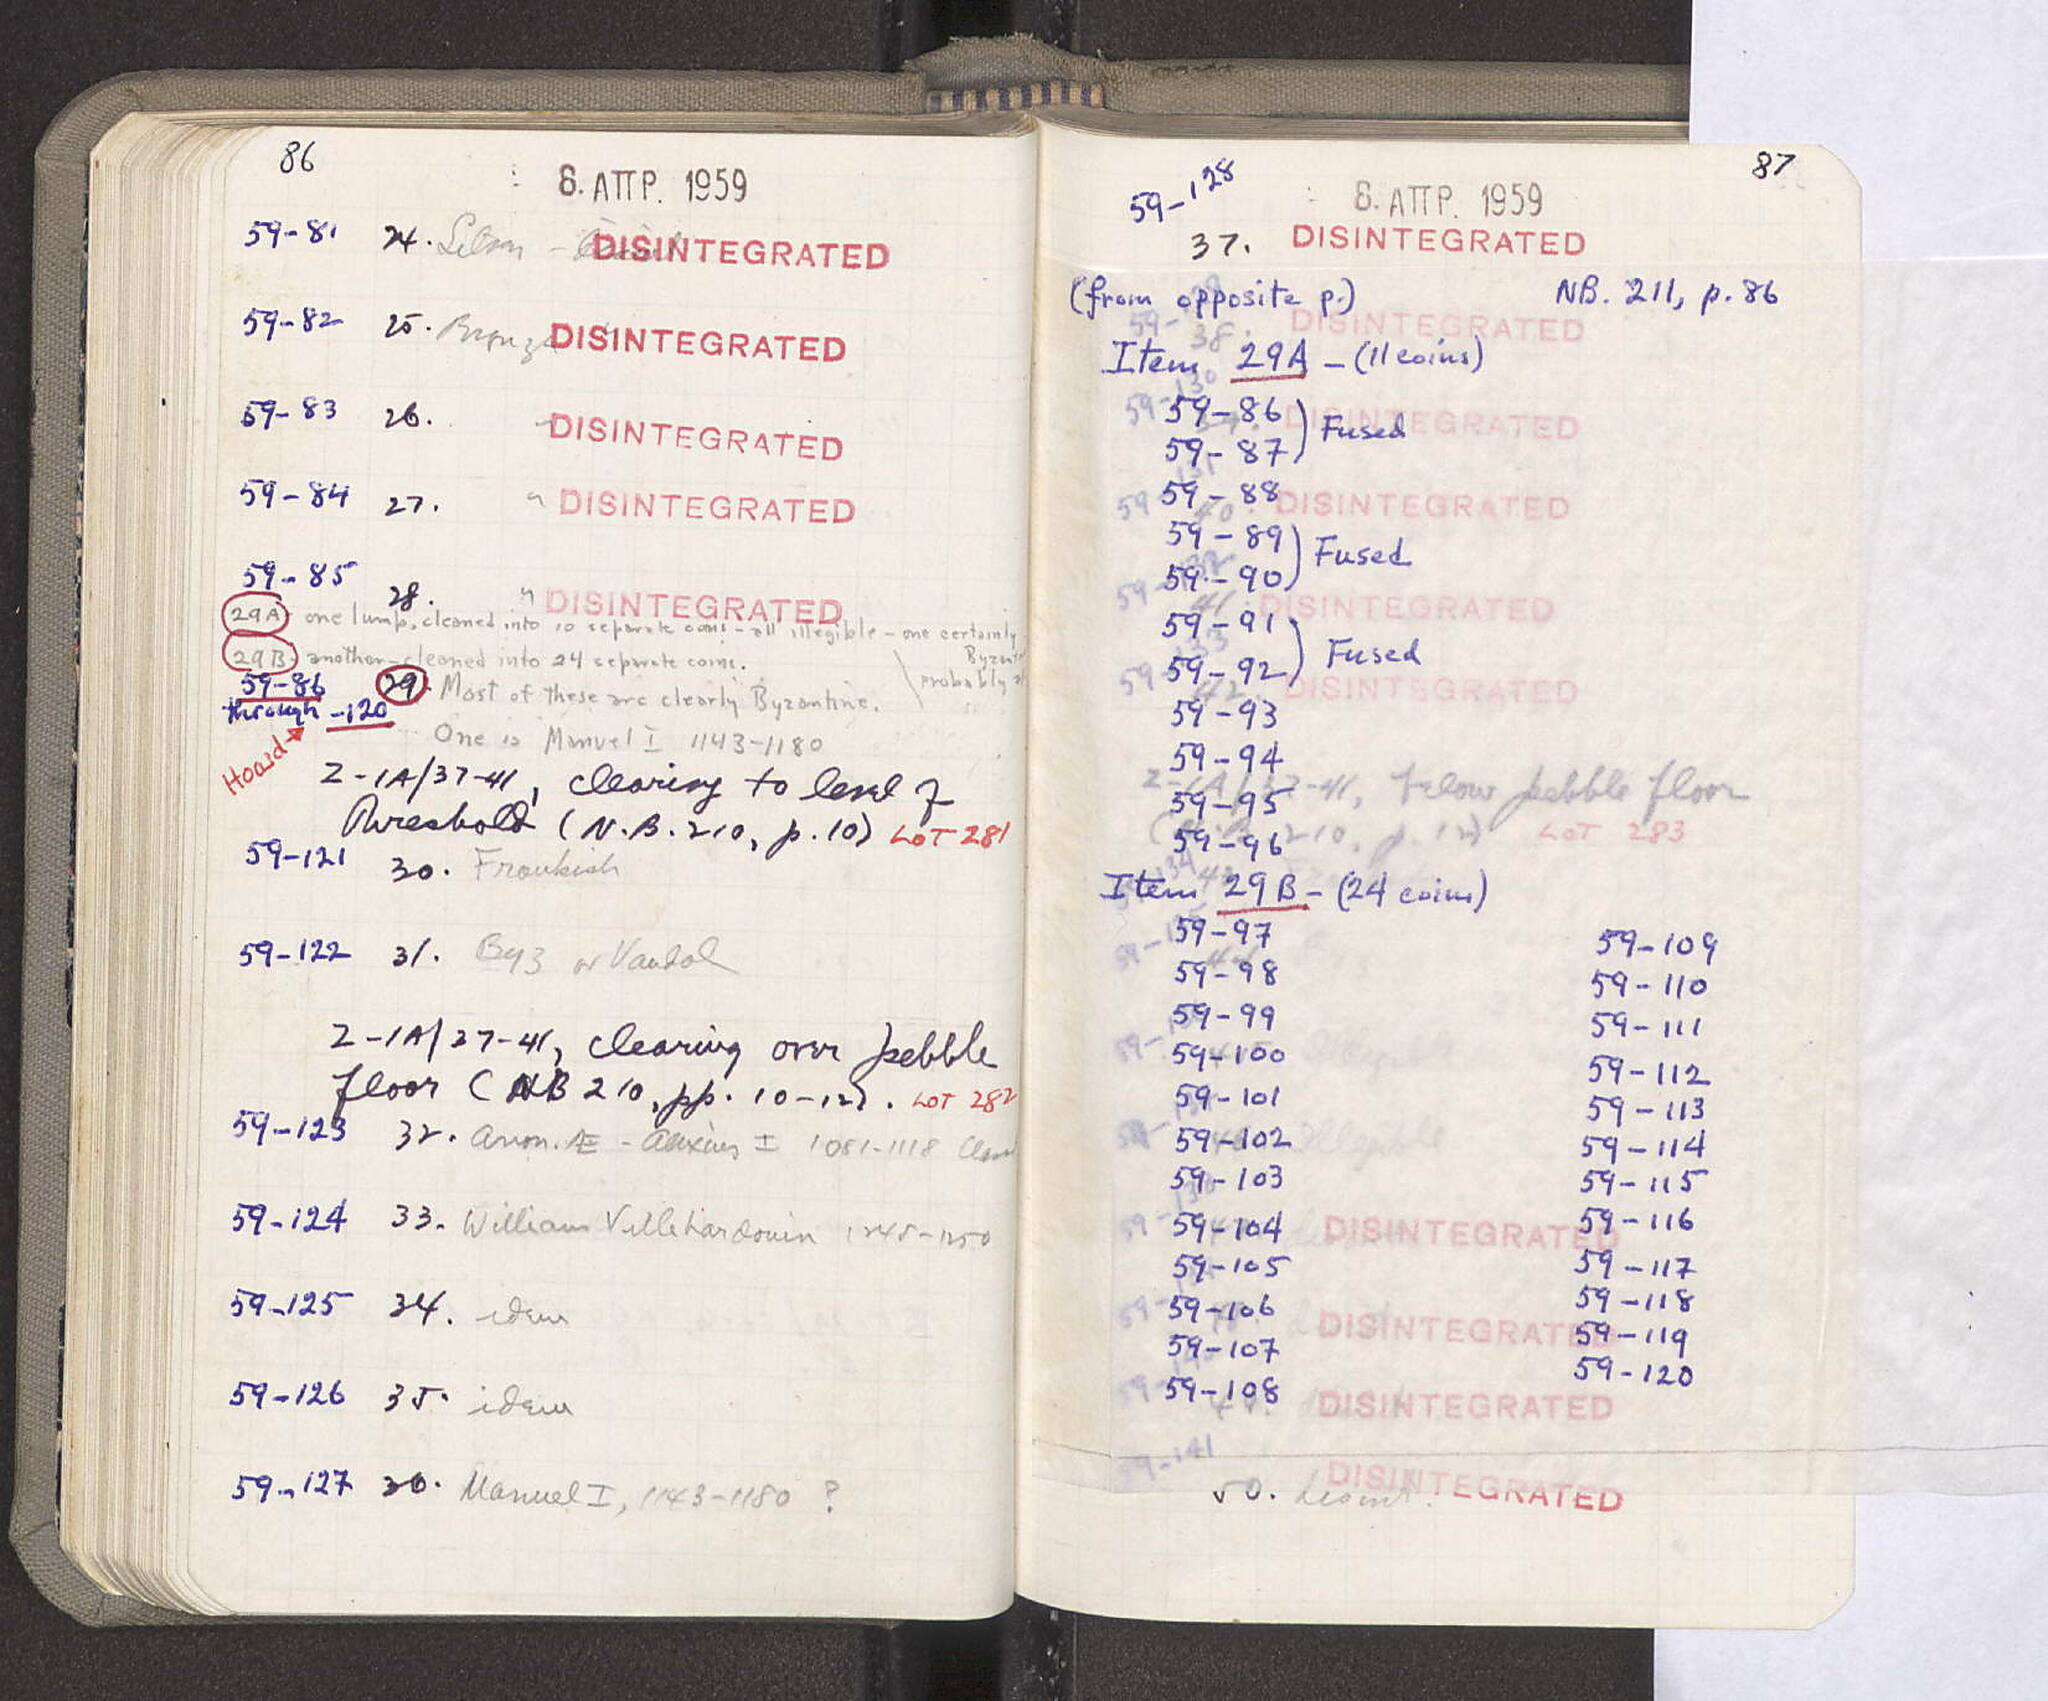 86
8. ΑΠΡ. 1959
59-81 24. DISINTEGRATED
59-82 25. Bronze DISINTEGRATED
59-83 26. " DISINTEGRATED
59-84 27. " DISINTEGRATED
59-85 28. " DISINTEGRATED
29A - one lump, cleaned into 10 separate coins - all illegible - one certainly
29B - another - cleaned into 24 separate coins.
probably
59-86 29. Most of these are clearly Byzantine.
through -120
One is Manuel I 1143-1180
Hoard
Z-1A/37-41, clearing to level of
threshold (N.B. 210, p. 10) LOT 281
59-121 30. Frankish
59-122 31. Byz or Vandal
Z-1A/37-41, clearing over pebble
floor (NB 210, pp. 10-12). LOT 282
59-123 32. Anon. Æ - Alexius I 1081-1118 Class
59-124 33. William Villehardouin 1245-1250
59-125 34. idem
59-126 35. idem
59-127 36. Manuel I, 1143-1180 ?
87
59-128
8. ΑΠΡ. 1959
37. DISINTEGRATED
(from opposite p.) NB. 211, p. 86
Item 29A - (11 coins)
59-86
59-87 Fused
59-88
59-89
59-90 Fused
59-91
59-92 Fused
59-93
59-94
59-95
59-96
Item 29B - (24 coins)
59-97
59-98
59-99
59-100
59-101
59-102
59-103
59-104
59-105
59-106
59-107
59-108
59-109
59-110
59-111
59-112
59-113
59-114
59-115
59-116
59-117
59-118
59-119
59-120
59-129
38. DISINTEGRATED
59-130
39. DISINTEGRATED
59-131
40. DISINTEGRATED
59-132
41. DISINTEGRATED
59-133
42. DISINTEGRATED
Z-1A/37-41, below pebble floor
(N.B. 210, p. 12) LOT 283
59-134
Illegible
Illegible
DISINTEGRATED
DISINTEGRATED
DISINTEGRATED
59-141
50. DISINTEGRATED